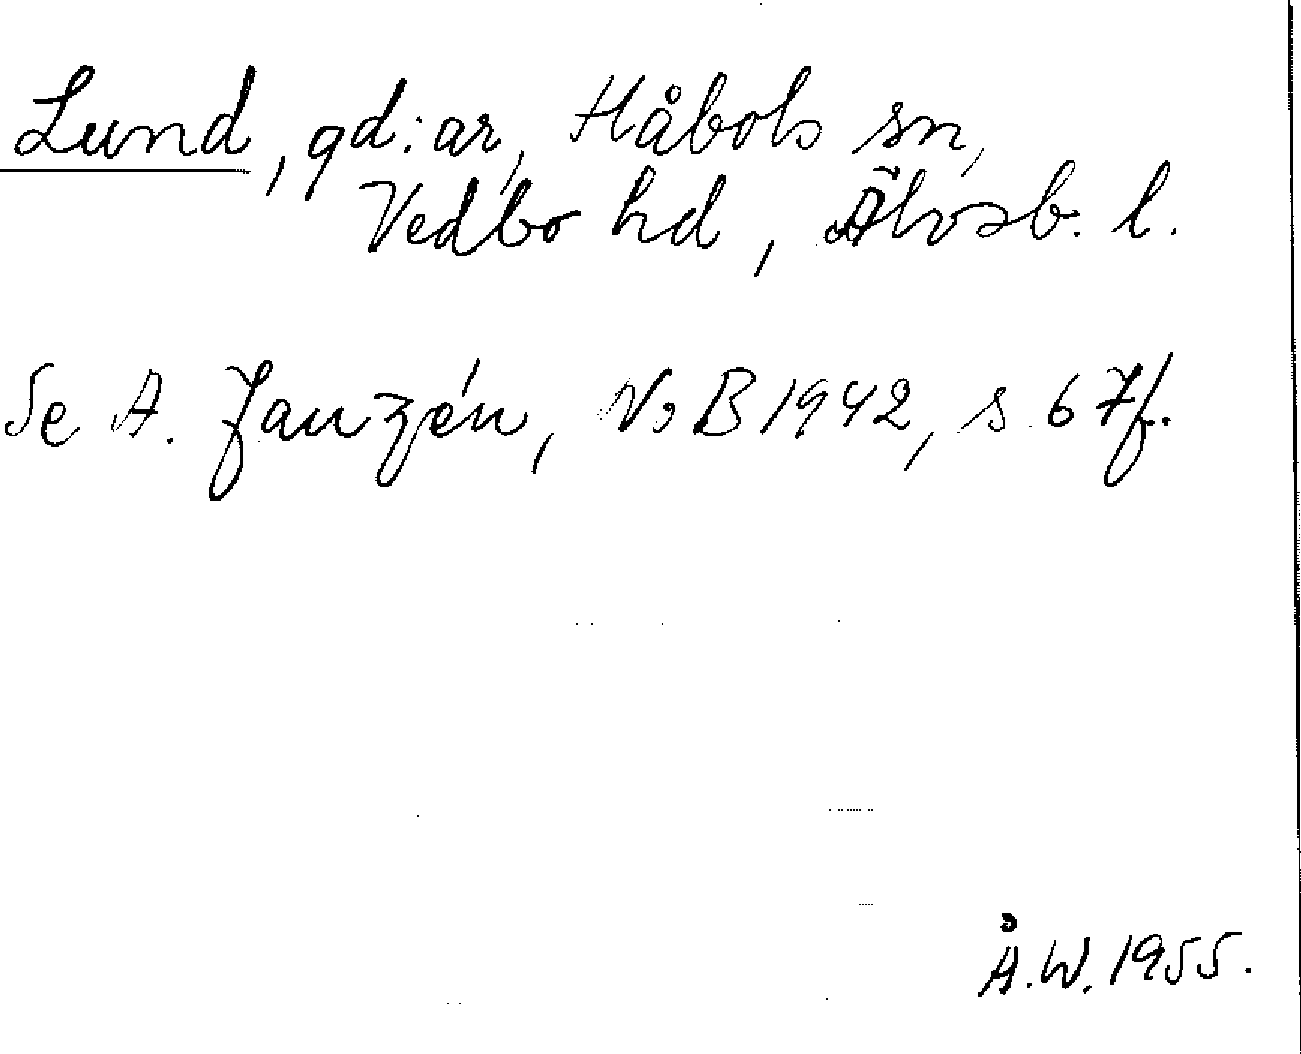 Lund, gd:ar, Håbols sn,
Vedbo hd, Älvsb. l.
Se A. Janzén, NoB 1942, s. 67f.
Å.W. 1955.